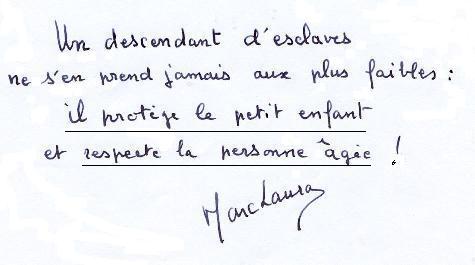 Un descendant d'esclaves
ne s'en prend jamais aux plus faibles :
il protège le petit enfant
et respecte la personne âgée !
Marc Laura